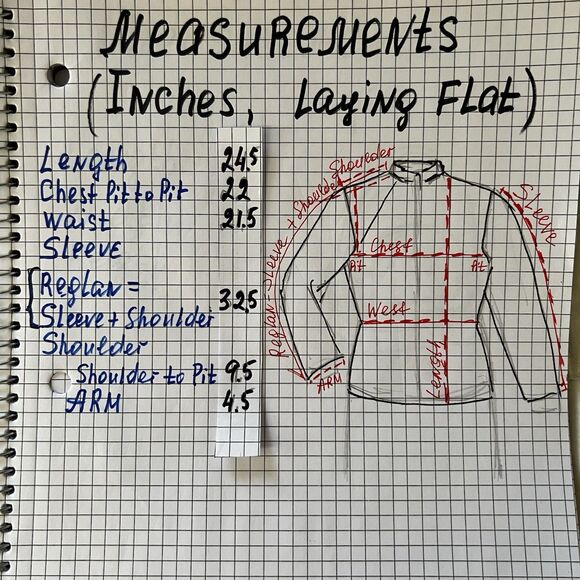 Measurements
(Inches, Laying Flat)
Length 24.5
Chest Pit to Pit 22
Waist 21.5
Sleeve
Reglan =
Sleeve + Shoulder 32.5
Shoulder
Shoulder to Pit 9.5
ARM 4.5
Shoulder
Reglan = Sleeve + Shoulder
Sleeve
Chest
At
At
West
Length
ARM